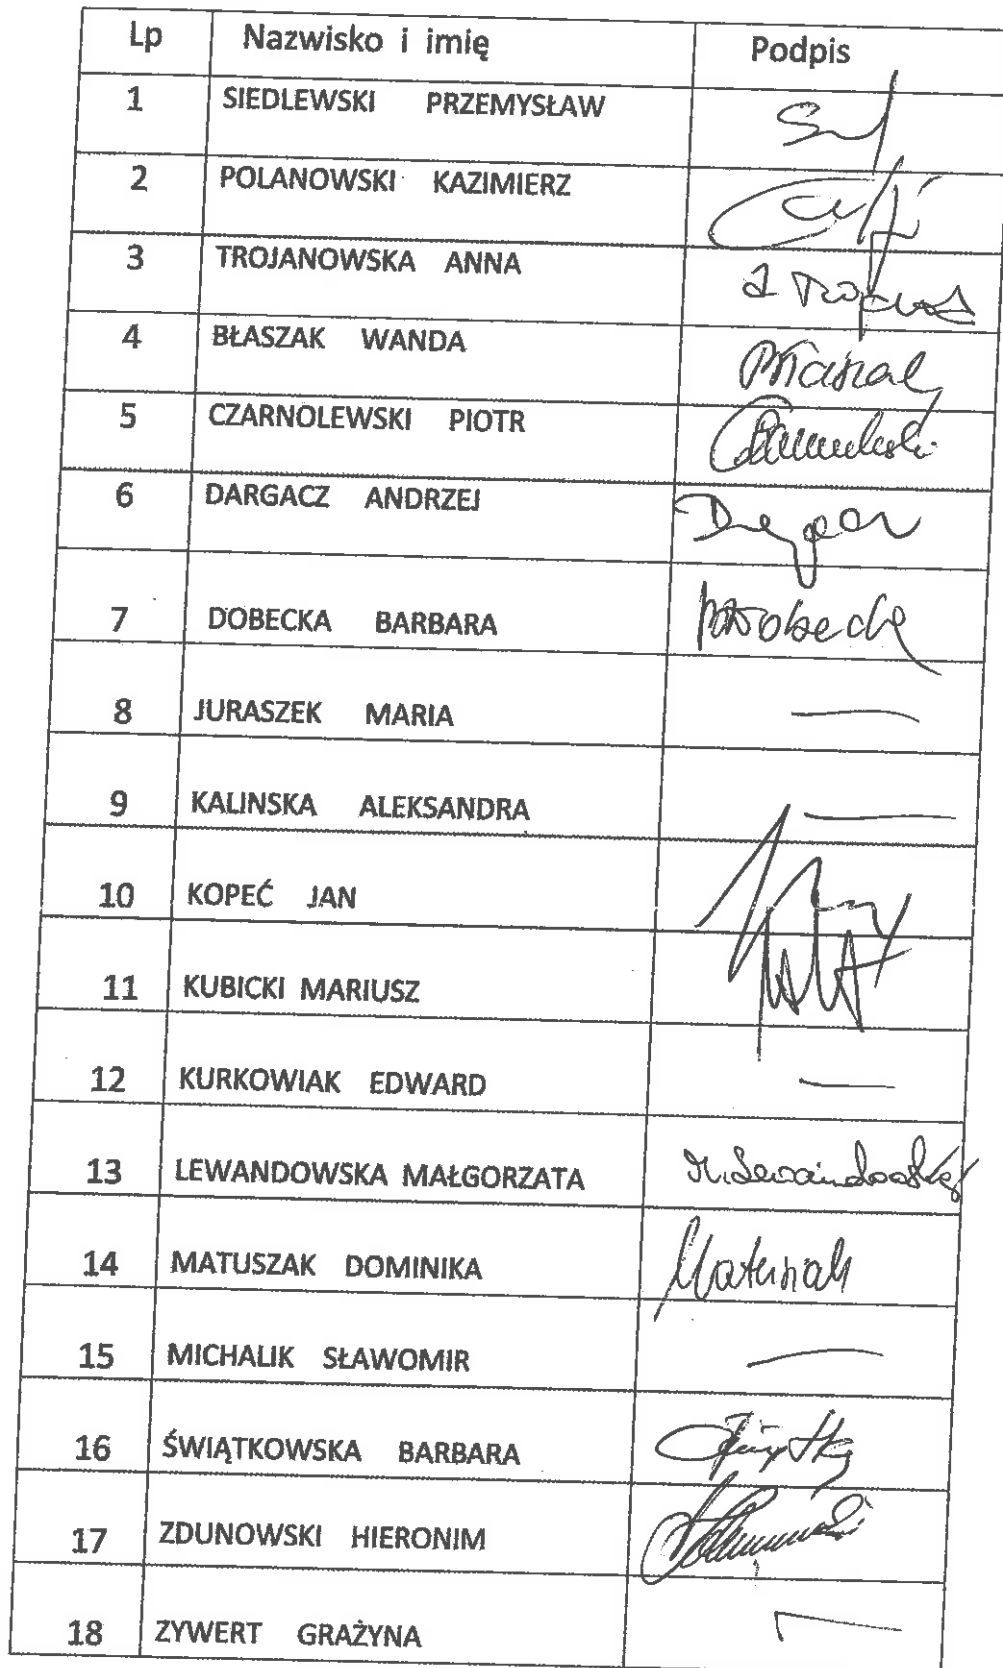 Lp Nazwisko i imię Podpis
1 SIEDLEWSKI PRZEMYSŁAW
2 POLANOWSKI KAZIMIERZ
3 TROJANOWSKA ANNA
4 BŁASZAK WANDA
5 CZARNOLEWSKI PIOTR
6 DARGACZ ANDRZEJ
7 DOBECKA BARBARA
8 JURASZEK MARIA —
9 KALINSKA ALEKSANDRA —
10 KOPEĆ JAN
11 KUBICKI MARIUSZ
12 KURKOWIAK EDWARD —
13 LEWANDOWSKA MAŁGORZATA M. Lewandowska
14 MATUSZAK DOMINIKA Matuszak
15 MICHALIK SŁAWOMIR —
16 ŚWIĄTKOWSKA BARBARA
17 ZDUNOWSKI HIERONIM
18 ZYWERT GRAŻYNA —